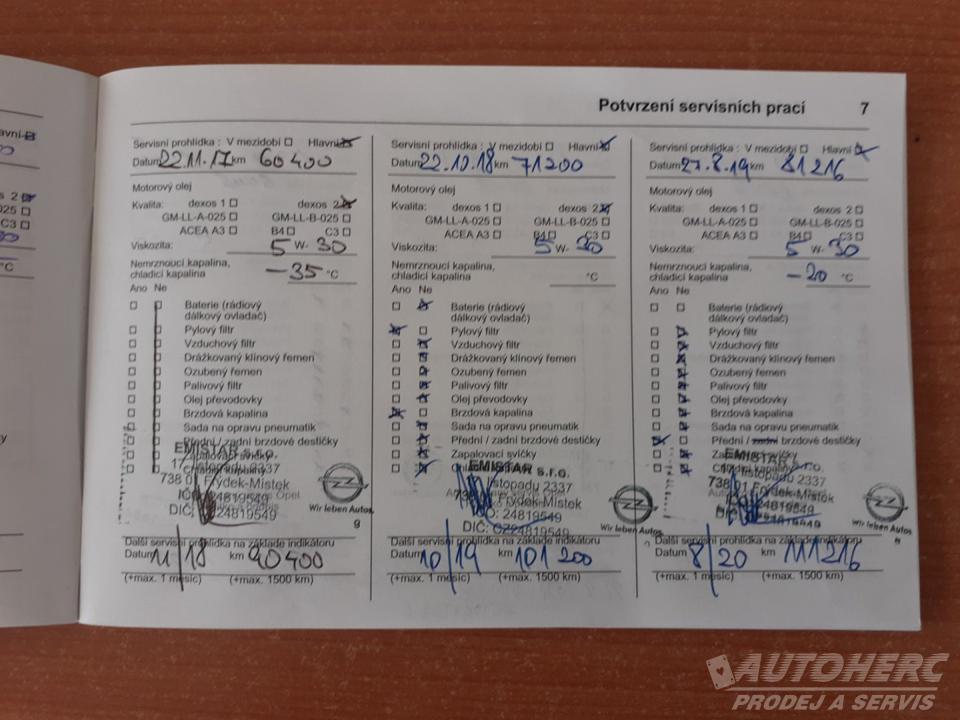 Potvrzení servisních prací 7
Servisní prohlídka : V mezidobí Hlavní
Datum 22.11.17 km 60400
Motorový olej
Kvalita: dexos 1 dexos 2
GM-LL-A-025 GM-LL-B-025
ACEA A3 B4 C3
Viskozita: 5 W- 30
Nemrznoucí kapalina,
chladicí kapalina -35 °C
Ano Ne
Baterie (rádiový
dálkový ovladač)
Pylový filtr
Vzduchový filtr
Drážkovaný klínový řemen
Ozubený řemen
Palivový filtr
Olej převodovky
Brzdová kapalina
Sada na opravu pneumatik
Přední / zadní brzdové destičky
Zapalovací svíčky
EMISTAR s.r.o.
17. listopadu 2337
738 01 Frýdek-Místek
IČO: 24819549
DIČ: CZ24819549
Wir leben Autos.
Další servisní prohlídka na základě indikátoru
Datum 11/18 km 90400
(+max. 1 měsíc) (+max. 1500 km)
Servisní prohlídka : V mezidobí Hlavní
Datum 22.10.18 km 71200
Motorový olej
Kvalita: dexos 1 dexos 2
GM-LL-A-025 GM-LL-B-025
ACEA A3 B4 C3
Viskozita: 5 W- 30
Nemrznoucí kapalina,
chladicí kapalina °C
Ano Ne
Baterie (rádiový
dálkový ovladač)
Pylový filtr
Vzduchový filtr
Drážkovaný klínový řemen
Ozubený řemen
Palivový filtr
Olej převodovky
Brzdová kapalina
Sada na opravu pneumatik
Přední / zadní brzdové destičky
Zapalovací svíčky
EMISTAR s.r.o.
listopadu 2337
738 Frýdek-Místek
IČO: 24819549
DIČ: CZ24819549
Wir leben Autos.
Další servisní prohlídka na základě indikátoru
Datum 10/19 km 101200
(+max. 1 měsíc) (+max. 1500 km)
Servisní prohlídka : V mezidobí Hlavní
Datum 27.8.19 km 81216
Motorový olej
Kvalita: dexos 1 dexos 2
GM-LL-A-025 GM-LL-B-025
ACEA A3 B4 C3
Viskozita: 5 W- 30
Nemrznoucí kapalina,
chladicí kapalina -20 °C
Ano Ne
Baterie (rádiový
dálkový ovladač)
Pylový filtr
Vzduchový filtr
Drážkovaný klínový řemen
Ozubený řemen
Palivový filtr
Olej převodovky
Brzdová kapalina
Sada na opravu pneumatik
Přední / zadní brzdové destičky
Zapalovací svíčky
EMISTAR s.r.o.
listopadu 2337
738 01 Frýdek-Místek
24819549
Wir leben Autos.
Další servisní prohlídka na základě indikátoru
Datum 8/20 km 111216
(+max. 1 měsíc) (+max. 1500 km)
AUTOHERC
PRODEJ A SERVIS